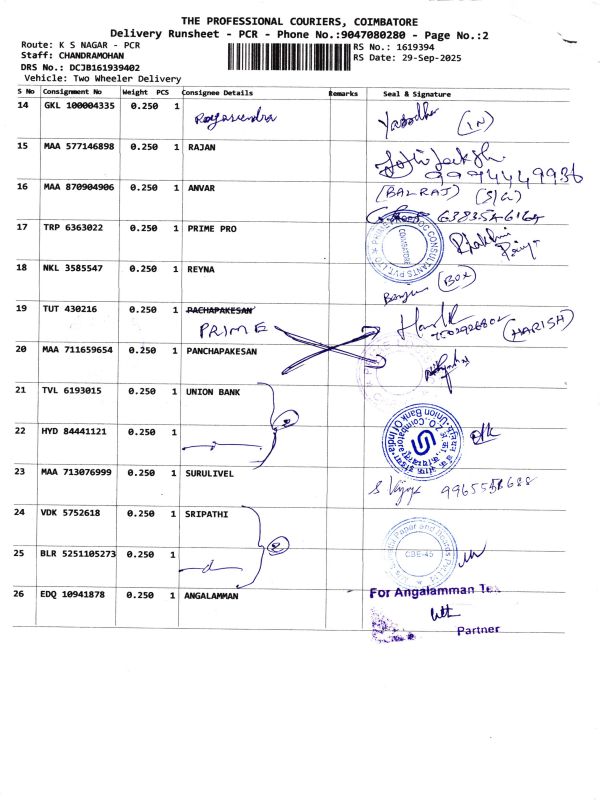 THE PROFESSIONAL COURIERS, COIMBATORE
Delivery Runsheet - PCR - Phone No.:9047080280 - Page No.:2
Route: K S NAGAR - PCR
RS No.: 1619394
Staff: CHANDRAMOHAN
RS Date: 29-Sep-2025
DRS No.: DCJB161939402
Vehicle: Two Wheeler Delivery
S No Consignment No Weight PCS Consignee Details Remarks Seal & Signature
14 GKL 100004335 0.250 1 (IN)
15 MAA 577146898 0.250 1 RAJAN
9994449936
16 MAA 870904906 0.250 1 ANVAR (BALRAJ) (S/G)
17 TRP 6363022 0.250 1 PRIME PRO
18 NKL 3585547 0.250 1 REYNA (BOX)
19 TUT 430216 0.250 1 PACHAPAKESAN
PRIME (HARISH)
20 MAA 711659654 0.250 1 PANCHAPAKESAN
21 TVL 6193015 0.250 1 UNION BANK
22 HYD 84441121 0.250 1
23 MAA 713076999 0.250 1 SURULIVEL
24 VDK 5752618 0.250 1 SRIPATHI
25 BLR 5251105273 0.250 1 CBE-45
26 EDQ 10941878 0.250 1 ANGALAMMAN For Angalamman Tex
Partner